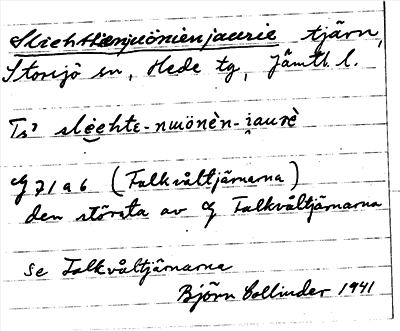 Sliehttienjuönienjaurie tjärn,
Storsjö sn, Hede tg, Jämtl. l.
Ts? slèehte-nuiönèn-i̯aurè
G 71 a 6 (Falkvåltjärnarna)
den största av G Falkvåltjärnarna
se Falkvåltjärnarna
Björn Collinder 1941